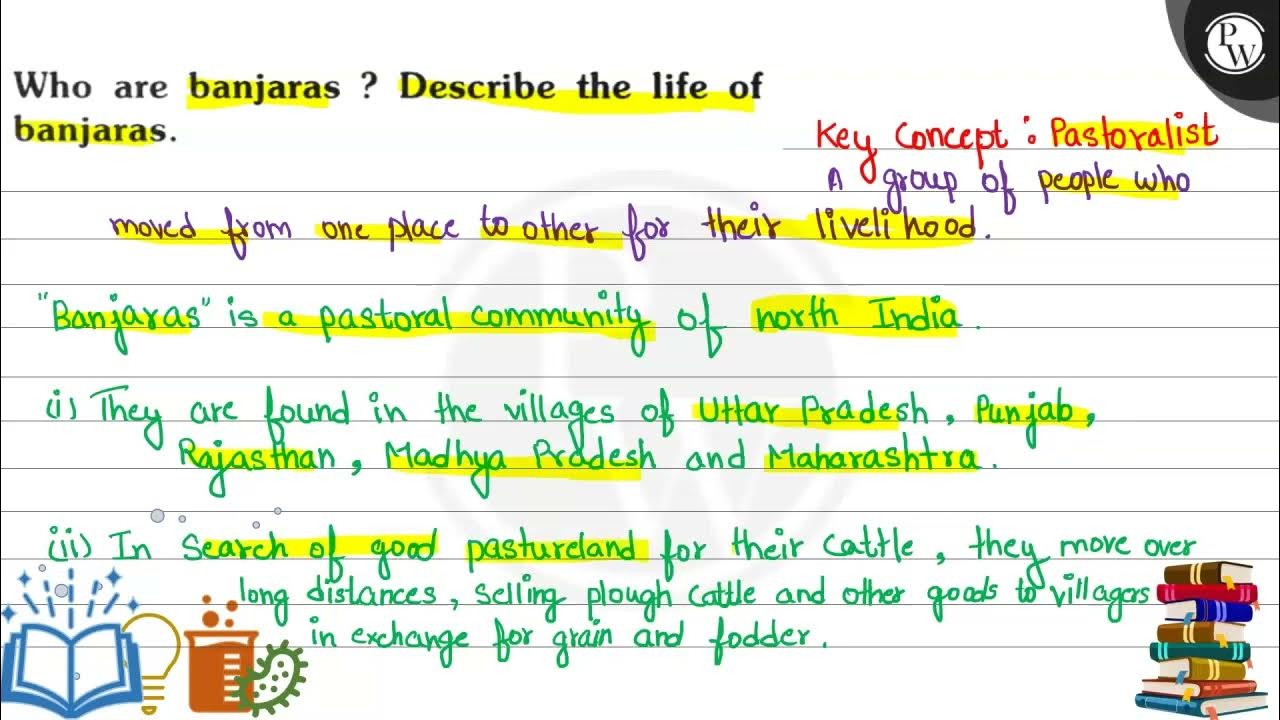 PW
Who are banjaras ? Describe the life of
banjaras.
Key Concept : Pastoralist
A group of people who
moved from one place to other for their livelihood.
"Banjaras" is a pastoral community of north India.
(i) They are found in the villages of Uttar Pradesh, Punjab,
Rajasthan, Madhya Pradesh and Maharashtra.
(ii) In search of good pastureland for their cattle, they move over
long distances, selling plough cattle and other goods to villagers
in exchange for grain and fodder.